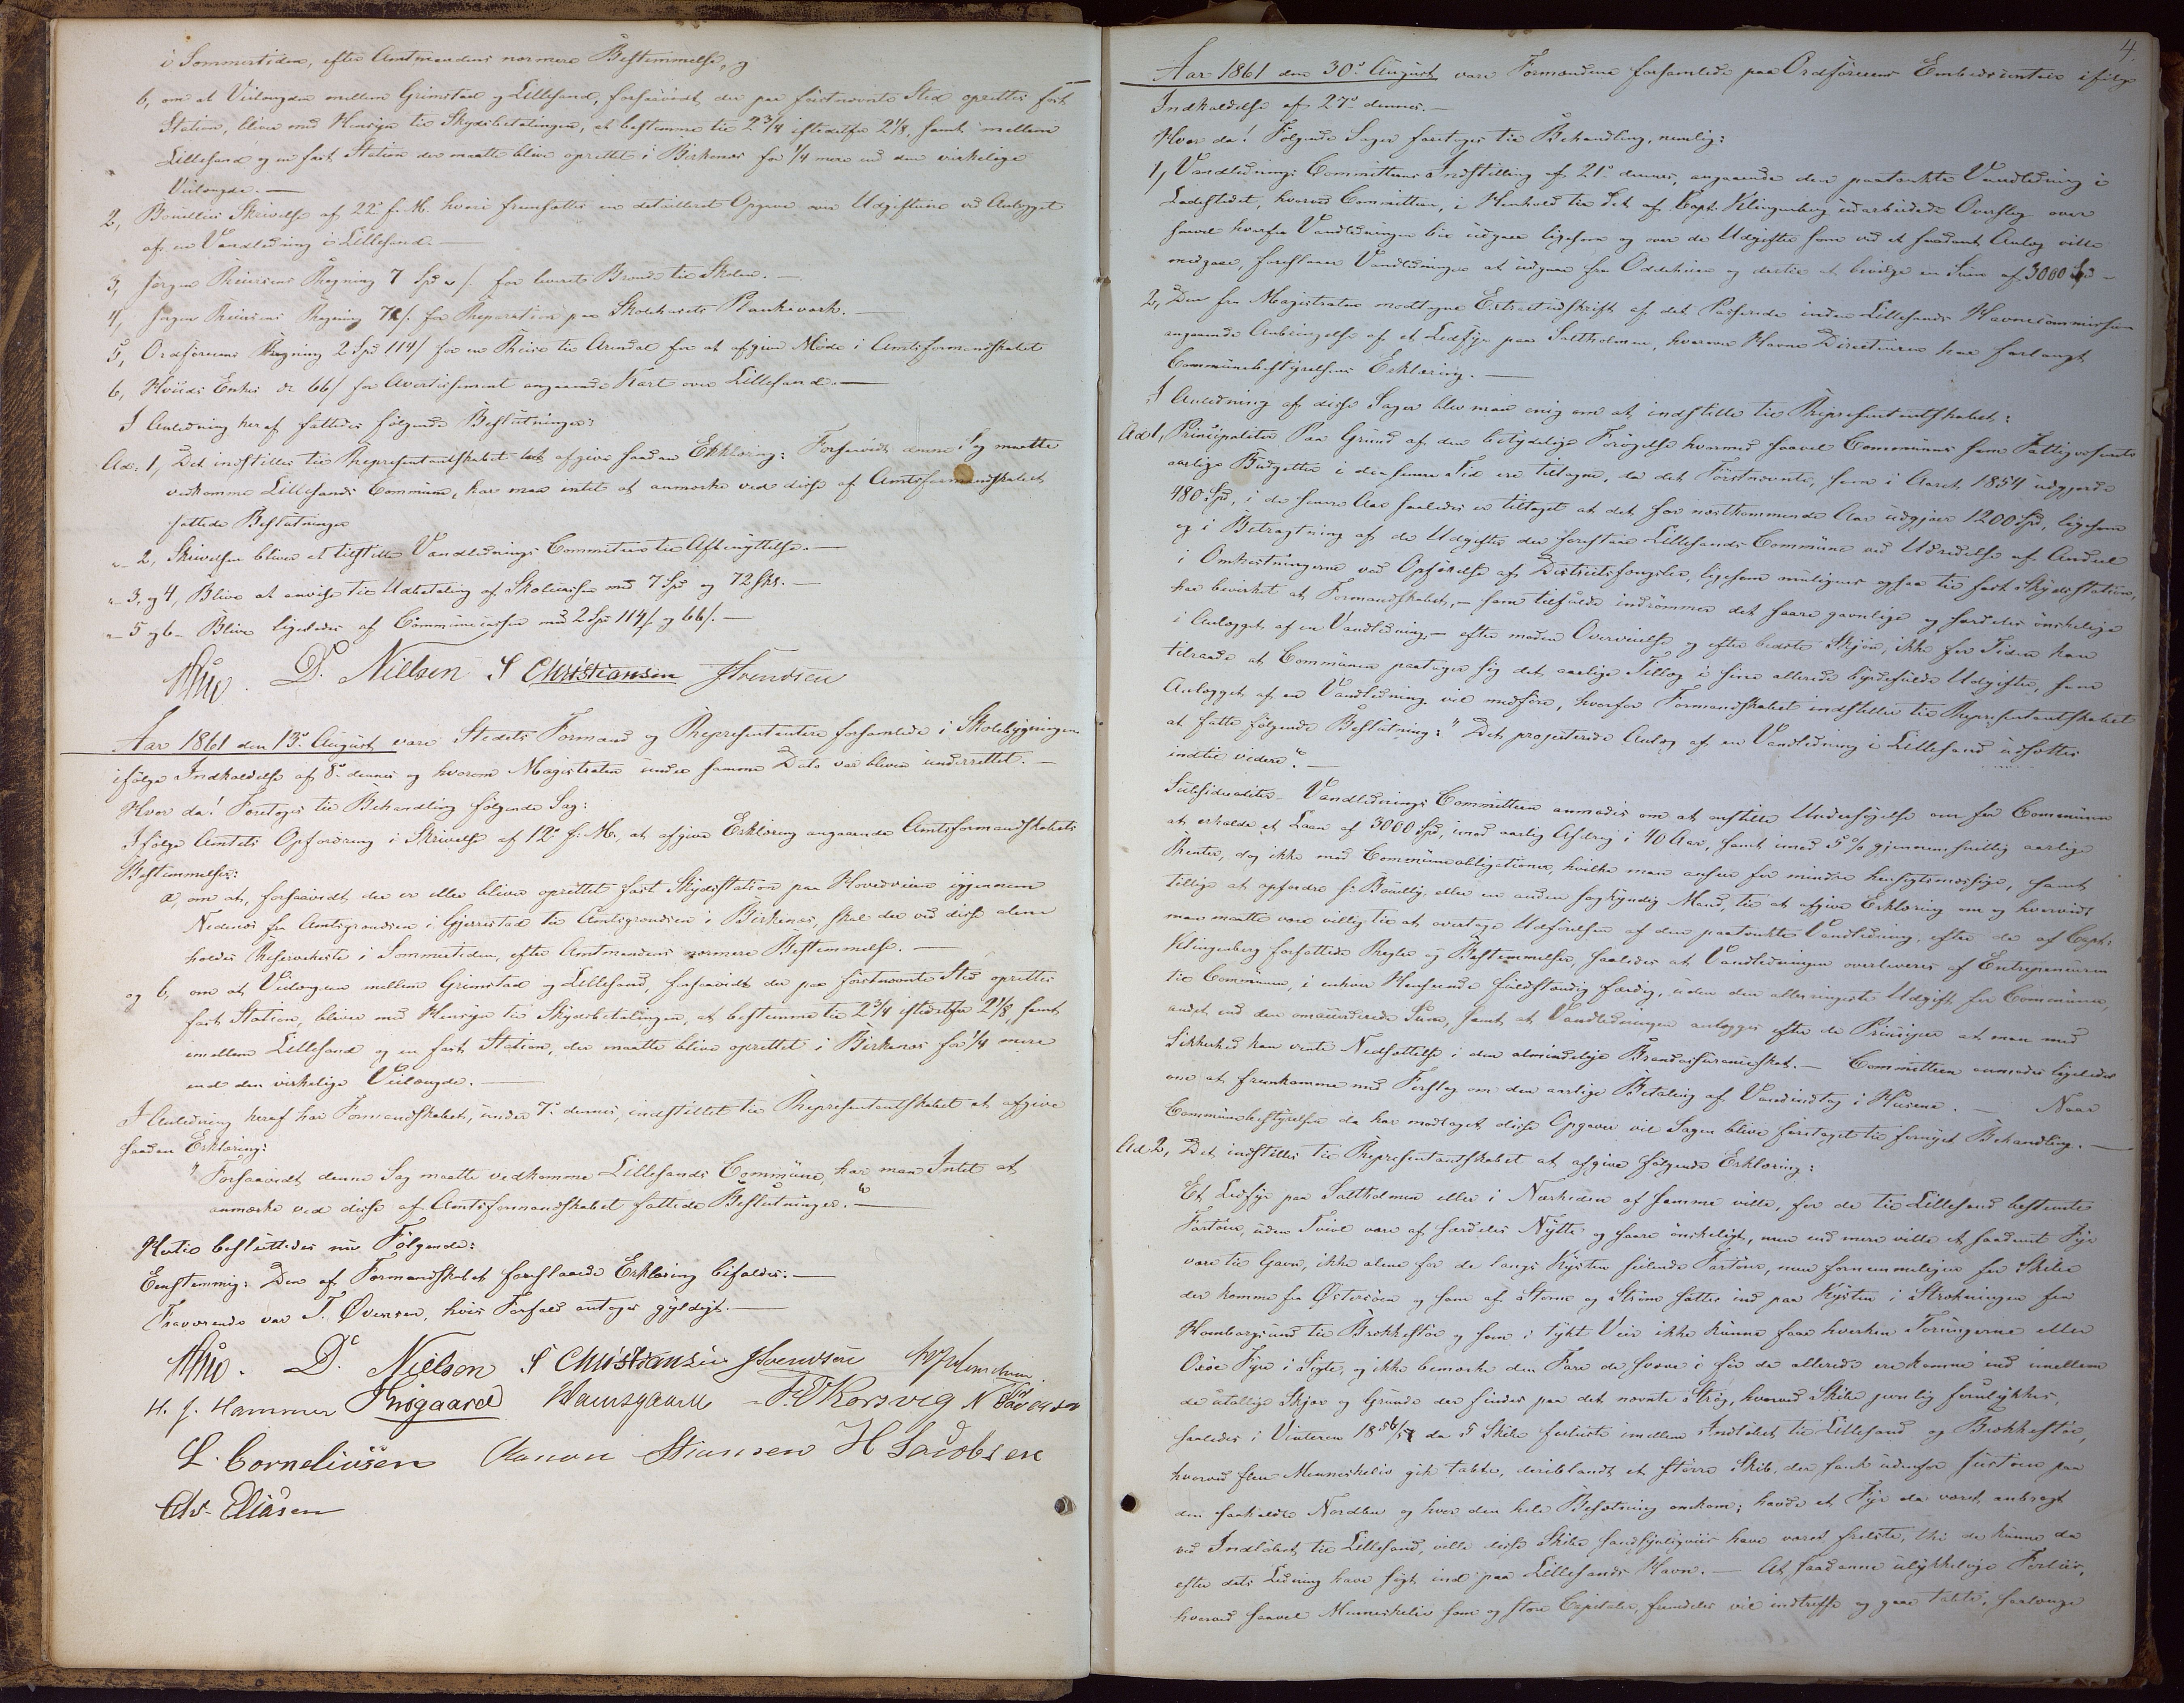 i Sommertiden, efter Amtmandens nærmere Bestemmelse, og
b, om at Veilængden mellem Grimstad og Lillesand, forsaavidt der paa førstnævnte Sted oprettes fast
Station, bliver med Hensyn til Skydsbetalingen, at bestemme til 2 3/4 istedetfor 2 1/8, samt mellem
Lillesand og en fast Station der maatte blive oprettet i Birkenes for 1/4 mere end den virkelige
Veilængde. —
2, Skrivelse af 22de f. M. hvori fremsættes en detailleret Opgave over Udgifterne ved Anlægget
af en Vandledning i Lillesand. —
3, Jørgen Reiersens Regning 7 Spd for leveret Brænde til Skolen. —
4, Jørgen Reiersens Regning 72 s. for Reparation paa Skolehusets Plankeværk. —
5, Ordførerens Regning 2 Spd 114 s for en Reise til Arendal for at afgive Møde i Amtsformandskabet
6, Enkes 66 s for Avertissement angaaende Kart over Lillesand. —
I Anledning heraf fattedes følgende Beslutninger:
Ad. 1, Det indstilles til Repræsentantskabet at afgive saadan Erklæring: Forsaavidt denne Sag maatte
vedkomme Lillesands Commune, har man intet at anmærke ved disse af Amtsformandskabet
fattede Beslutninger
" 2, Skrivelsen bliver at tilstille Vandlednings Committeen til Afbenyttelse. —
" 3, og 4, Blive at anvise til Udbetaling af Skolecassen med 7 Spd og 72 Sks. —
" 5 og 6 - Blive ligeledes af Communecassen med 2 Spd 114 s. og 66 s. —
D. Nielsen S Christiansen JSvendsen
Aar 1861 den 13de August vare Stedets Formænd og Repræsentantere forsamlede i Skolebygningen
ifølge Indkaldelse af 8de dennes og hvorom Magistraten under samme Dato var bleven underrettet. —
Hvor da! Foretoges til Behandling følgende Sag:
Ifølge Amtets Opfordring i Skrivelse af 12te f. M., at afgive Erklæring angaaende Amtsformandskabets
Bestemmelser:
a, om at, forsaavidt der er eller bliver oprettet fast Skydsstation paa Hovedveien igjennem
Nedenes fra Amtsgrændsen i Gjerrestad til Amtsgrændsen i Birkenes, skal der ved disse alene
holdes Reserveheste i Sommertiden, efter Amtmandens nærmere Bestemmelse. —
og b, om at Veilængden mellem Grimstad og Lillesand, forsaavidt der paa førstnævnte Sted oprettes
fast Station, bliver med Hensyn til Skydsbetalingen, at bestemme til 2 3/4 istedetfor 2 1/8, samt
imellem Lillesand og en fast Station, der maatte blive oprettet i Birkenes for 1/4 mere
end den virkelige Veilængde. —
I Anledning heraf har Formandskabet, under 7de dennes, indstillet til Repræsentantskabet at afgive
saadan Erklæring:
"Forsaavidt denne Sag maatte vedkomme Lillesands Commune, har man Intet at
anmærke ved disse af Amtsformandskabet fattede Beslutninger." —
Hertil besluttedes nu Følgende:
Eenstemmig: Den af Formandskabet foreslaaede Erklæring bifaldes. —
Fraværende var T. Ovensen, hvis Forfald antages gyldigt. —
D. Nielsen S Christiansen JSvendsen
H. J. Hammer Krøgaard Korsvig N
L. Corneliussen Aanon Stiansen H Jacobsen
Chr. Eliasen
4.
Aar 1861 den 30te August vare Formændene forsamlede paa Ordførerens Embedscontoir ifølge
Indkaldelse af 27de dennes. —
Hvor da! Følgende Sager foretoges til Behandling, nemlig:
1, Vandlednings Committeens Indstilling af 21de dennes, angaaende den paatænkte Vandledning i
Ladestedet, hvorved Committeen, i Henhold til det af Capt. Klingenberg udarbeidede Overslag over
saavel hvorfra Vandledningen bør udgaae ligesom og over de Udgifter som ved et saadant Anlæg ville
medgaae, foreslaaer Vandledningen at udgaae fra og dertil at bevilge en Sum af 3000 Spd -
2, Den fra Magistraten modtagne Extractudskrift af det Passerede inden Lillesands Havnecommission
angaaende Anbringelse af et Ledfyr paa Saltholmen, hvorom Havne Directeuren har forlangt
Communebestyrelsens Erklæring. —
I Anledning af disse Sager blev man enig om at indstille til Repræsentantskabet:
Ad 1, Principaliter Paa Grund af den betydelige Forøgelse hvormed saavel Communens som Fattigvæsenets
aarlige Budgetter i den senere Tid ere tiltagne, da det Førstnævnte, som i Aaret 1854 udgjorde
480 Spd, i de senere Aar saaledes er tiltaget at det for næstkommende Aar udgjør 1200 Spd, ligesom
og i Betragtning af de Udgifter der forestaae Lillesands Commune ved Udredelse af Andeel
i Omkostningerne ved Opførelse af Districtsfængslet, ligesom muligens ogsaa til fast Skydsstation,
har bevirket at Formandskabet, — som tilfulde indrømmer det saare gavnlige og særdeles ønskelige
i Anlægget af en Vandledning, — efter moden Overveielse og efter bedste Skjøn, ikke for Tiden kan
tilraade at Communen paatager sig det aarlige Tillæg i sine allerede byrdefulde Udgifter, som
Anlægget af en Vandledning vil medføre, hvorfor Formandskabet indstiller til Repræsentantskabet
at fatte følgende Beslutning: "Det projecterede Anlæg af en Vandledning i Lillesand udsættes
indtil videre." —
Subsidialiter - Vandlednings Committeen anmodes om at anstille Undersøgelse om for Communen
at erholde et Laan af 3000 Spd, imod aarlig Afdrag i 40 Aar, samt imod 5 % gjennemsnitlig aarlige
Renter, dog ikke mod Communeobligationer, hvilke man anseer for mindre hensigtsmæssige, samt
tillige at opfordre Hr eller en anden sagkyndig Mand, til at afgive Erklæring om og hvorvidt
man maatte være villig til at overtage Udførelsen af den paatænkte Vandledning, efter de af Capt:
Klingenberg forfattede Regler og Bestemmelser, saaledes at Vandledningen overleveres af Entrepreneuren
til Communen, i enhver Henseende fuldstændig færdig, uden den allerringeste Udgift for Communen,
andet end den Sum, samt at Vandledningen anlægges efter de Principer at man med
Sikkerhed kan vente Nedsættelse i den almindelige Brandassuranceskat. — Committeen anmodes ligeledes
om at fremkomme med Forslag om den aarlige Betaling af Vandindtag i Husene. — Naar
Communebestyrelsen da har modtaget disse Opgaver vil Sagen blive foretaget til fornyet Behandling. —
Ad 2, Det indstilles til Repræsentantskabet at afgive følgende Erklæring:
Et Ledfyr paa Saltholmen eller i Nærheden af samme ville, for de til Lillesand bestemte
Fartøier, uden Tvivl være af særdeles Nytte og saare ønskeligt, men end mere ville et saadant Fyr
være til Gavn, ikke alene for de langs Kysten seilende Fartøier, men fornemmeligen for Skibe
der komme fra Østersøen og som af Storm og Strøm sættes ind paa Kysten i Strækningen fra
Homborgsund til Brekkestø og som i tykt Veir ikke kunne faae hverken Torungerne eller
Oxøe Fyr i Sigte, og ikke bemærke den Fare de svæve i før de allerede ere komne ind imellem
de utallige Skjær og Grunde der findes paa det nævnte Strøg, hvorved Skibe jevnlig forulykker,
saaledes i Vinteren 1856/57 da 5 Skibe forliste imellem Indløbet til Lillesand og Brekkestø,
hvorved flere Menneskeliv gik tabte, deriblandt et større Skib, der sank udenfor Justøen paa
den saakaldte Nordbu og hvor den hele Besætning omkom; havde et Fyr da været anbragt
ved Indløbet til Lillesand, ville disse Skibe sandsynligviis have været frelste, thi de kunne da
efter dets Ledning have søgt ind paa Lillesands Havn. — At saadanne ulykkelige Forliis,
hvorved saavel Menneskeliv som og store Capitaler, fremdeles vil indtræffe og gaae tabte, saalænge